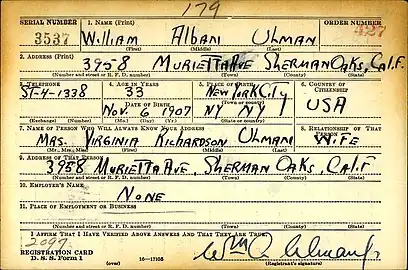 179
SERIAL NUMBER 1. NAME (Print) ORDER NUMBER
3537 WILLIAM ALBAN UHMAN 427
(First) (Middle) (Last)
2. ADDRESS (Print)
3958 MURIETTA AVE SHERMAN OAKS, CALIF.
(Number and street or R. F. D. number) (Town) (County) (State)
3. TELEPHONE 4. AGE IN YEARS 5. PLACE OF BIRTH 6. COUNTRY OF CITIZENSHIP
ST-4-1338 33 NEW YORK CITY
DATE OF BIRTH (Town or county) USA
NOV. 6 1907 NY NY
(Exchange) (Number) (Mo.) (Day) (Yr.) (State or country)
7. NAME OF PERSON WHO WILL ALWAYS KNOW YOUR ADDRESS 8. RELATIONSHIP OF THAT PERSON
MRS. VIRGINIA RICHARDSON UHMAN WIFE
(Mr., Mrs., Miss) (First) (Middle) (Last)
9. ADDRESS OF THAT PERSON
3958 MURIETTA AVE, SHERMAN OAKS, CALIF
(Number and street or R. F. D. number) (Town) (County) (State)
10. EMPLOYER'S NAME
NONE
11. PLACE OF EMPLOYMENT OR BUSINESS
(Number and street or R. F. D. number) (Town) (County) (State)
I AFFIRM THAT I HAVE VERIFIED ABOVE ANSWERS AND THAT THEY ARE TRUE.
2097
REGISTRATION CARD
D. S. S. Form 1 (over) 16—17105 (Registrant's signature)